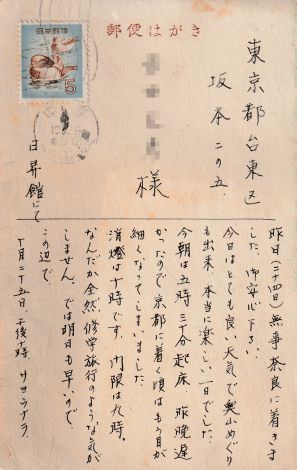 郵便はがき
日本郵便
5
東京都台東区
坂本二の五
様
日昇館にて
昨日(二十四日)無事奈良に着きま
した。御安心下さい。
今日はとても良い天気で奥山めぐり
も出来、本当に楽しい一日でした。
今朝は五時三十分起床 昨晩遅
かったので京都に着く頃はもう目が
細くなってしまいました。
消燈は十時です。門限は九時。
なんだか全然、修学旅行のような気が
しません。では明日も早いので、
この辺で
十月二十五日 午後十時、サヨウナラ